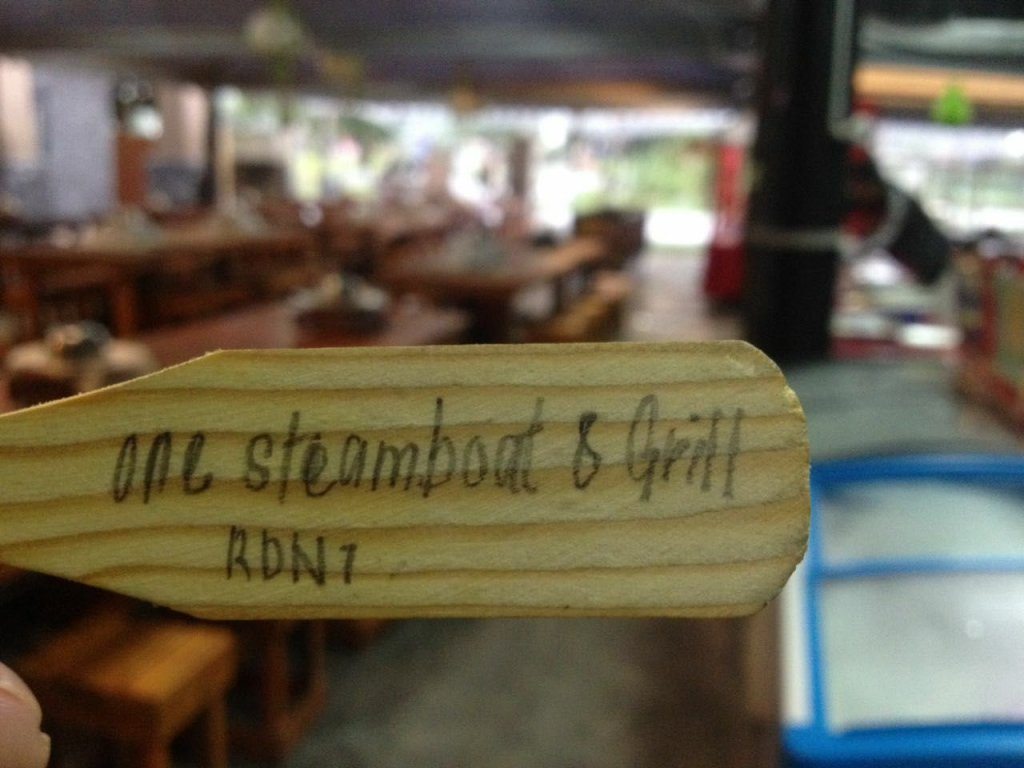 one steamboat & Grill
RDNT